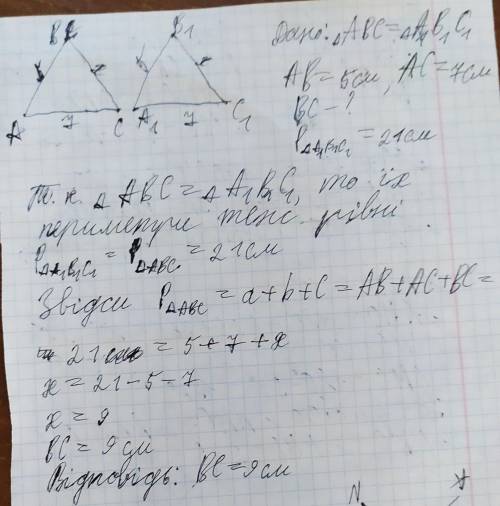 B B1
5 x 5 x
A 7 C A1 7 C1
Дано: △ABC=△A1B1C1
AB=5см, AC=7см
BC-?
P△A1B1C1=21см
Т. к. △ABC=△A1B1C1, то їх
периметри теж рівні
P△A1B1C1=P△ABC=21см
Звідси P△ABC=a+b+c=AB+AC+BC=
21=5+7+x
x=21-5-7
x=9
BC=9см
Відповідь: BC=9см
N